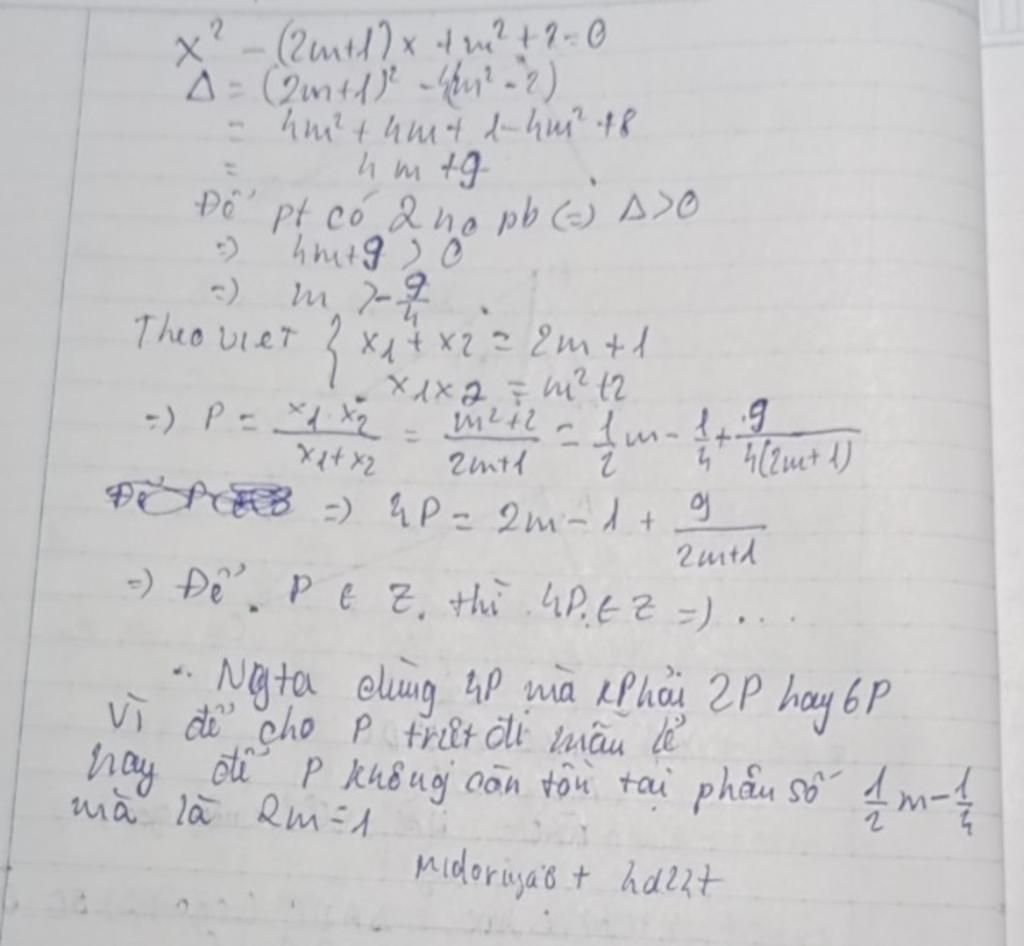 x² - (2m+1)x + m² + 2 = 0
Δ = (2m+1)² - 4(m² - 2)
= 4m² + 4m + 1 - 4m² + 8
= 4m + 9
Để pt có 2 no pb (=) Δ > 0
=) 4m + 9 > 0
=) m > -9/4
Theo viet { x1 + x2 = 2m + 1
x1x2 = m² + 2
=) P = x1.x2/(x1+x2) = (m²+2)/(2m+1) = 1/2 m - 1/4 + 9/(4(2m+1))
=) 4P = 2m - 1 + 9/(2m+1)
=) Để P ∈ Z. thì 4P ∈ Z =) ...
Ngta dùng 4P mà kphải 2P hay 6P
Vì để cho P triệt đi mẫu lẻ
hay để P không còn tồn tại phân số 1/2 m - 1/4
mà là 2m - 1